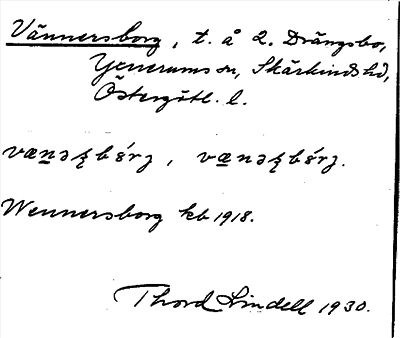 Vännersborg, t. å 2. Drängsbo,
Yxnerums sn, Skärkinds hd,
Östergötl. l.
Wennersborg kb 1918.
Thord Lindell 1930.